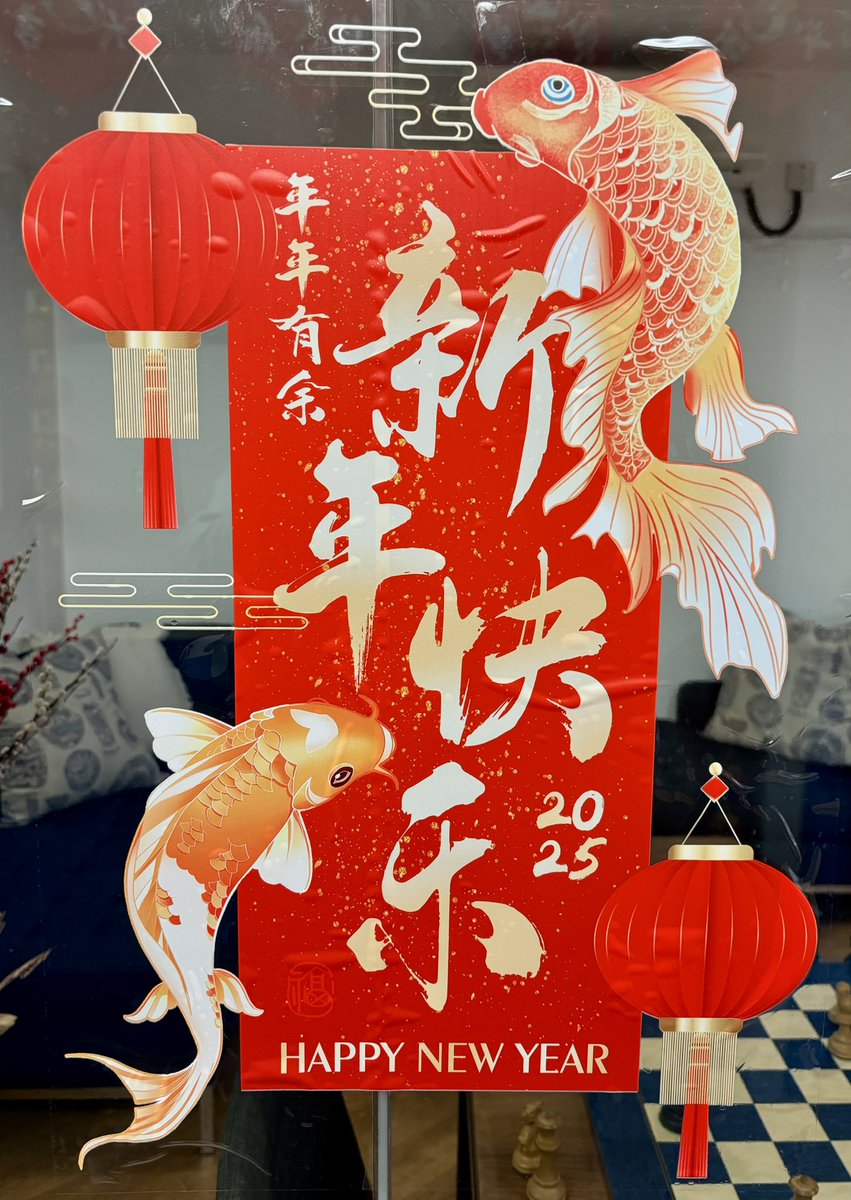 年年有余
新年快乐
2025
福
HAPPY NEW YEAR